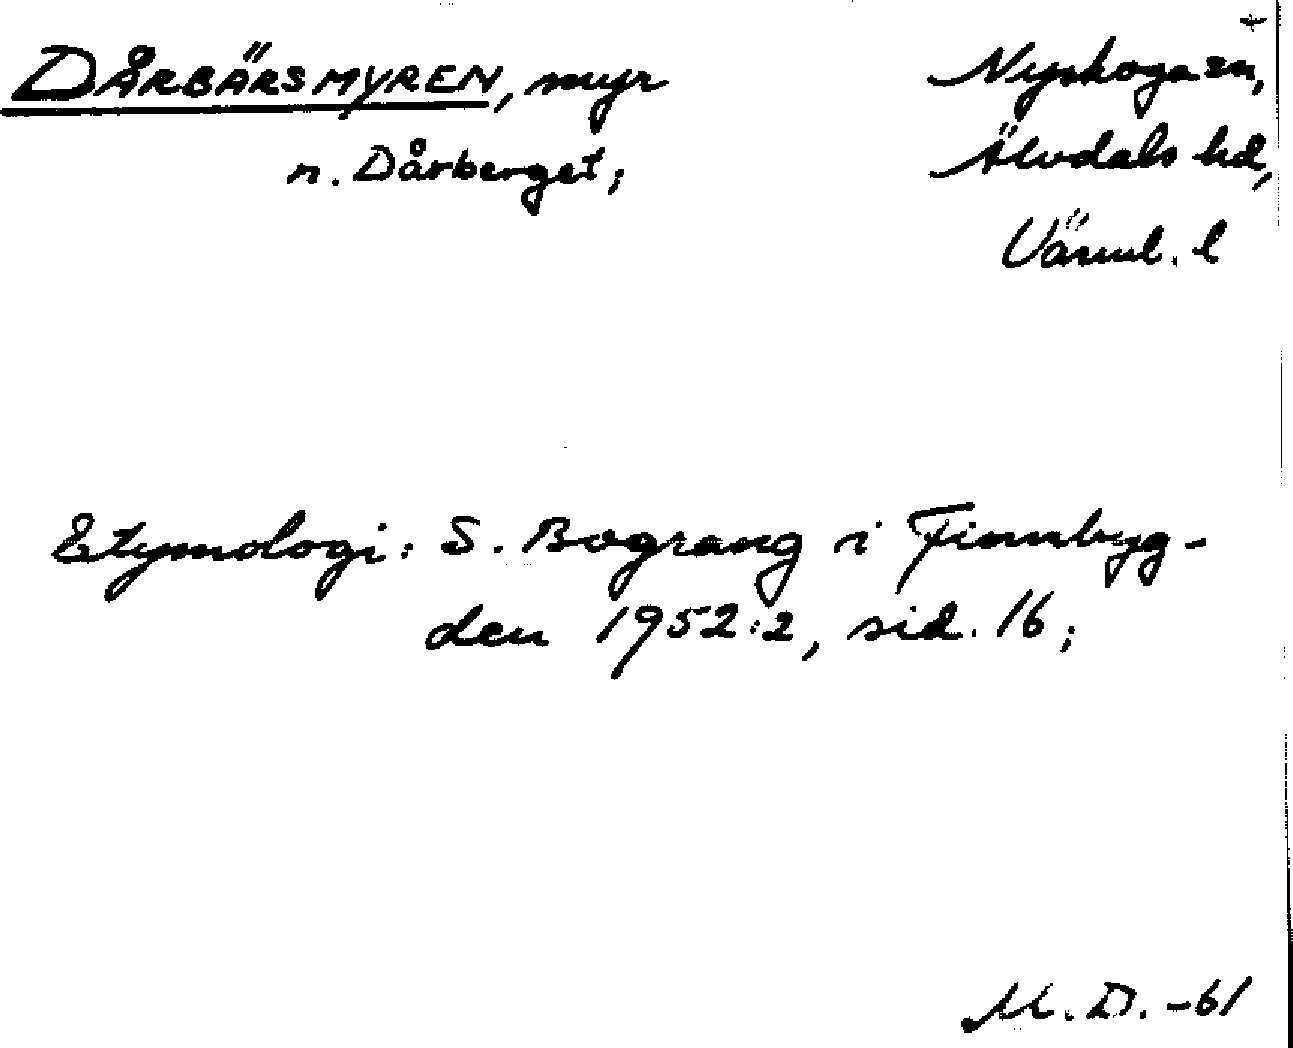 DÅRBÄRSMYREN, myr
n. Dårberget;
Nyskoga sn,
Älvdals hd,
Värml. l
Etymologi: S. Bograng i Finnbyg-
den 1952:2, sid. 16;
M. D. -61